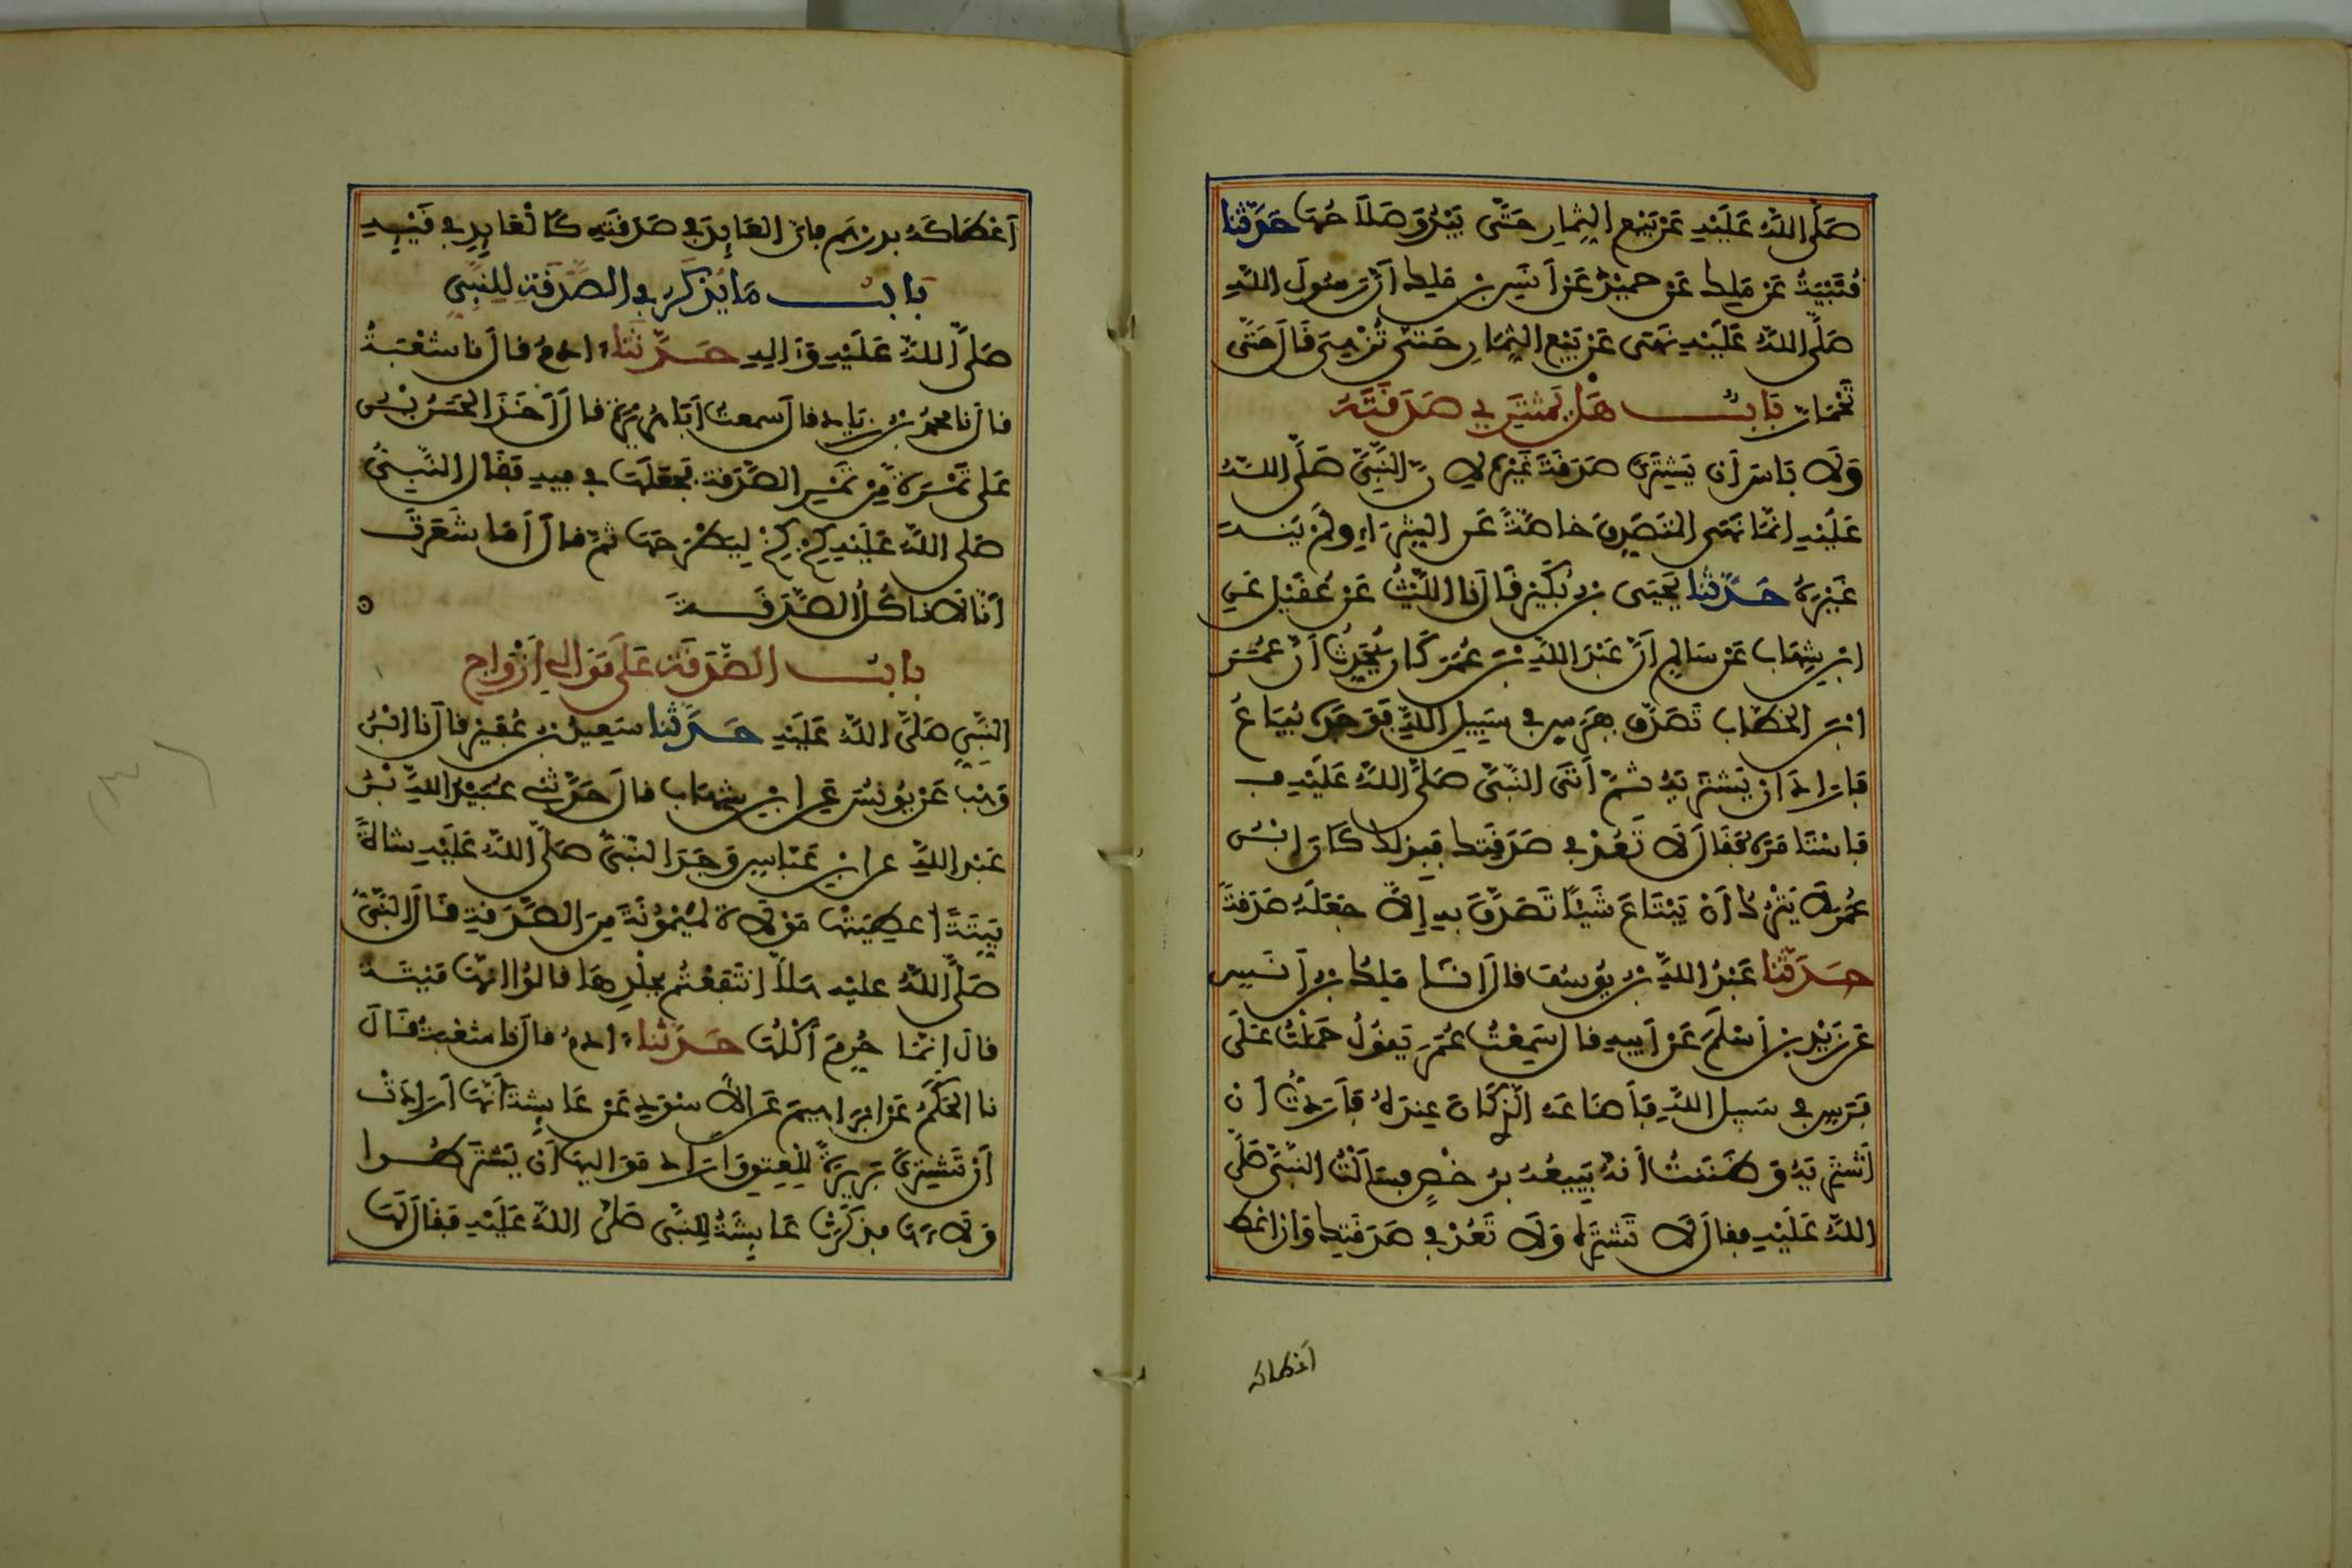 صَلَّى اللَّهُ عَلَيْهِ عَنْ بَيْعِ الثِّمَارِ حَتَّى يَبْدُوَ صَلَاحُهَا حَدَّثَنَا
قُتَيْبَةُ عَنْ مَلِكٍ عَنْ حميْدٍ عَنْ أَنَسِ بْنِ مَلِكٍ أَنَّ رَسُولَ اللَّهِ
صَلَّى اللَّهُ عَلَيْهِ نَهَى عَنْ بَيْعِ الثِّمَارِ حَتَّى تُزْهِيَ قَالَ حَتَّى
تَحْمَارَّ بَابٌ هَلْ يَشْتَرِي صَدَقَتَهُ
وَلَا بَاسَ أَن يَشْتَرِيَ صَدَقَةَ غَيْرِهِ لِأَنَّ النَّبِيَّ صَلَّى اللَّهُ
عَلَيْهِ انَّمَا نَهَى الْمُتَصَدِّقَ خَاصَّةً عَنِ الشِّرَاءِ وَلَمْ يَنْهَ
غَيْرَهُ حَدَّثَنَا يَحْيَى بْنُ بُكَيْرٍ قَالَ نا اللَّيْثُ عَنْ عُقَيْلٍ عَنِ
ابْنِ شِهَابٍ عَنْ سَالِمٍ أَنَّ عَبْدَ اللَّهِ بْنَ عُمَرَ كَانَ يُحَدِّثُ أَنَّ عُمَرَ
ابْنَ الْخَطَّابِ تَصَدَّقَ بِفَرَسٍ فِي سَبِيلِ اللَّهِ فَوَجَدَهُ يُبَاعُ
فَأَرَادَ أَنْ يَشْتَرِيَهُ ثُمَّ أَتَى النَّبِيَّ صَلَّى اللَّهُ عَلَيْهِ
فَاسْتَامَرَهُ فَقَالَ لَا تَعُدْ فِي صَدَقَتِكَ فَبِذَلِكَ كَانَ ابْنُ
عُمَرَ لَا يَتْرُكُ أَنْ يَبْتَاعَ شَيْئًا تَصَدَّقَ بِهِ إِلَّا جَعَلَهُ صَدَقَةً
حَدَّثَنَا عَبْدُ اللَّهِ بْنُ يُوسُفَ قَالَ أَنَا مَلِكُ بْنُ أَنَسٍ
عَنْ زَيْدِ بْنِ أَسْلَمَ عَنْ أَبِيهِ قَالَ سَمِعْتُ عُمَرَ يَقُولُ حَمَلْتُ عَلَى
فَرَسٍ فِي سَبِيلِ اللَّهِ فَأَضَاعَهُ الَّذِي كَانَ عِنْدَهُ فَأَرَدتُّ أَنْ
أَشْتَرِيَهُ وَظَنَنْتُ أَنَّهُ يَبِيعُهُ بِرُخْصٍ فَسَأَلْتُ النَّبِيَّ صَلَّى
اللَّهُ عَلَيْهِ فَقَالَ لَا تَشْتَرِهِ وَلَا تَعُدْ فِي صَدَقَتِكَ وَإِنْ اعْطَ
أعطاكه
أَعْطَاكَهُ بِدِرْهَمٍ فَإِنَّ الْعَائِدَ فِي صَدَقَتِهِ كَالْعَائِدِ فِي قَيْئِهِ
بَابُ مَا يُذْكَرُ فِي الصَّدَقَةِ لِلنَّبِيِّ
صَلَّى اللَّهُ عَلَيْهِ وَآلِهِ حَدَّثَنَا آدَمُ قَالَ نا شُعْبَةُ
قَالَ نا مُحَمَّدُ بْنُ زِيَادٍ قَالَ سَمِعْتُ أَبَا هُرَيْرَةَ قَالَ أَخَذَ الْحَسَنُ بْنُ
عَلِي تَمْرَةً مِنْ تَمْرِ الصَّدَقَةِ فَجَعَلَهَا فِي فِيهِ فَقَالَ النَّبِيُّ
صَلَّى اللَّهُ عَلَيْهِ كِخْ كِخْ لِيَطْرَحَهَا ثُمَّ قَالَ أَمَا شَعَرْتَ
أَنَّا لَا نَاكُلُ الصَّدَقَةَ
بَابُ الصَّدَقَةِ عَلَى مَوَالِي أَزْوَاجِ
النَّبِيِّ صَلَّى اللَّهُ عَلَيْهِ حَدَّثَنَا سَعِيدُ بْنُ عُفَيْرٍ قَالَ نا ابْنُ
وَهْبٍ عَنْ يُونُسَ عَنِ ابْنِ شِهَابٍ قَالَ حَدَّثَنِي عُبَيْدُ اللَّهِ بْنُ
عَبْدِ اللَّهِ عَنِ ابْنِ عَبَّاسٍ وَجَدَ النَّبِيُّ صَلَّى اللَّهُ عَلَيْهِ شَاةً
مَيِّتَةً أُعْطِيَتْهَا مَوْلَاةٌ لِمَيْمُونَةَ مِنَ الصَّدَقَةِ قَالَ النَّبِيُّ
صَلَّى اللَّهُ عَلَيْهِ هَلَّا انْتَفَعْتُمْ بِجِلْدِهَا قَالُوا إِنَّهَا مَيْتَةٌ
قَالَ إِنَّمَا حُرِمَ أَكْلُهَا حَدَّثَنَا آدَمُ قَالَ نا شُعْبَةُ قَالَ
نا الْحَكَمُ عَنْ ابْرَاهِيمَ عَنِ الْأَسْوَدِ عَنْ عَائِشَةَ أَنَّهَا أَرَادَتْ
أَنْ تَشْتَرِيَ بَرِيرَةَ لِلْعِتْقِ وَأَرَادَ مَوَالِيهَا أَنْ يَشْتَرِطُوا
وَلَاءَهَا فَذَكَرَتْ عَائِشَةُ لِلنَّبِي صَلَّى اللَّهُ عَلَيْهِ فَقَالَ لَهَا